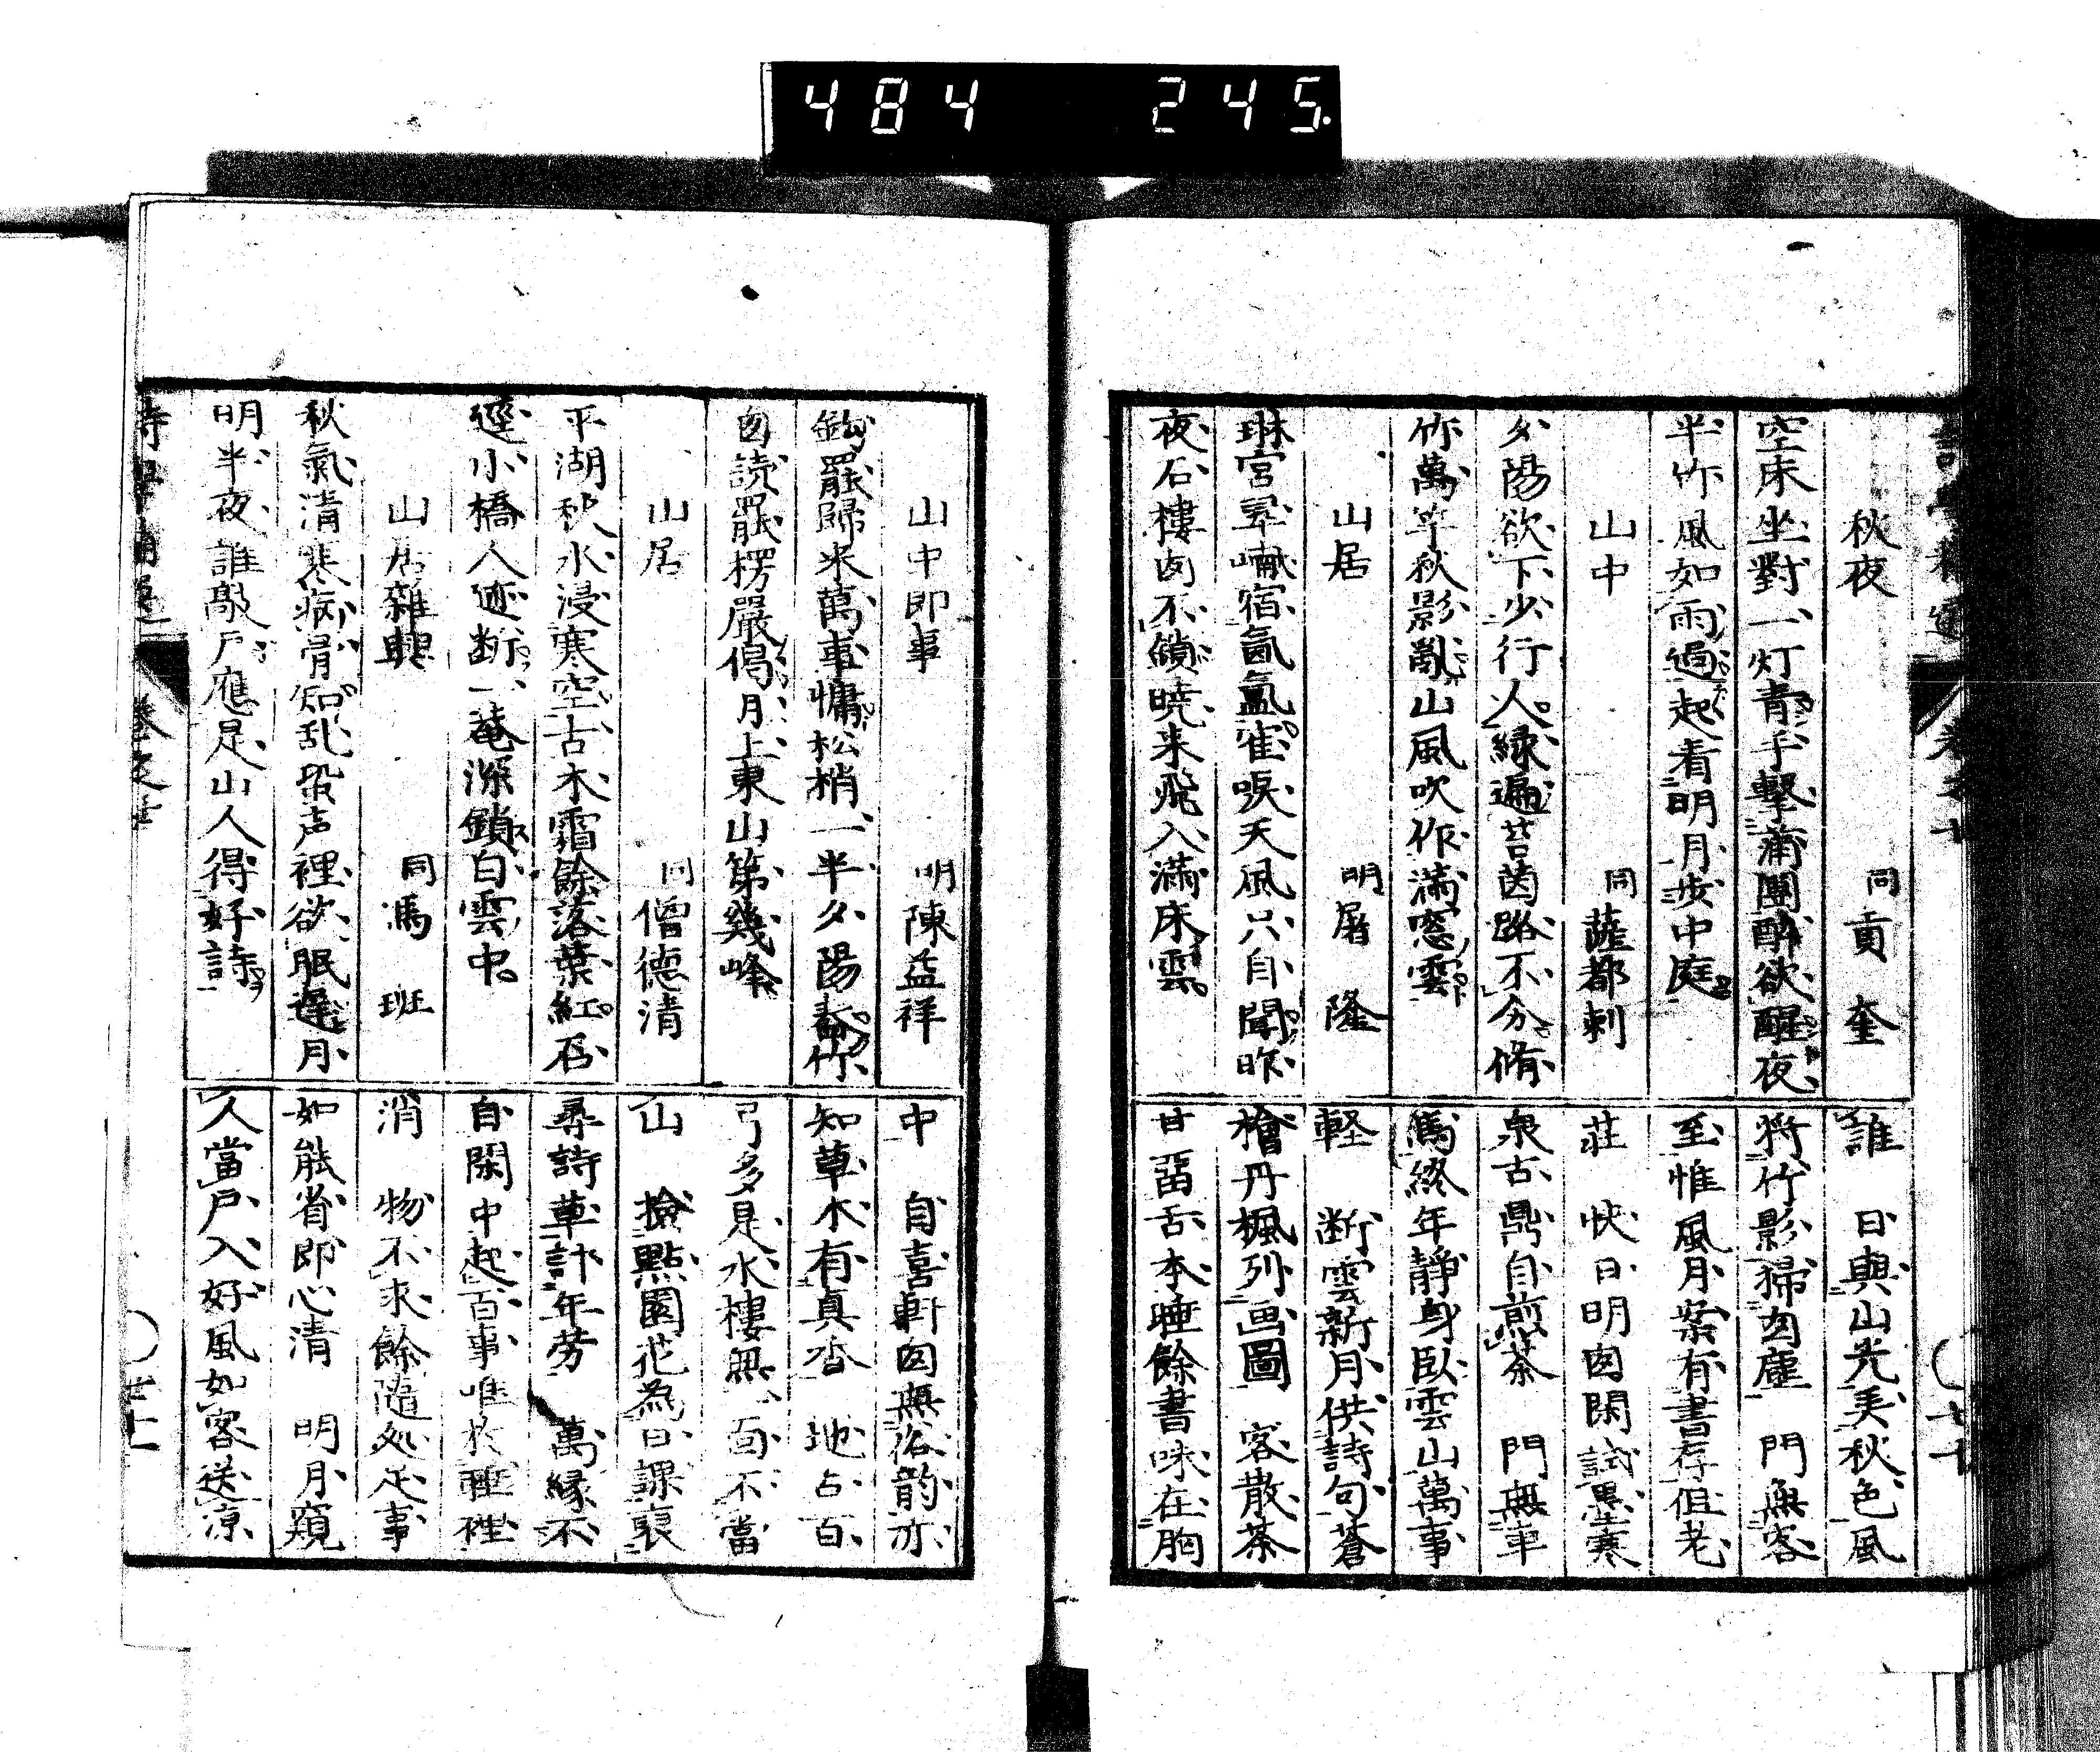 484 245
秋夜 同 貢奎
空床坐對一灯青手擊蒲團醉欲醒夜
半竹風如雨過起看明月步中庭
山中 同 薩都剌
夕陽欲下少行人緑遍苔茵路不分脩
竹萬竿秋影亂山風吹作滿窓雲
山居 明 屠隆
琳宮翠嶹宿氤氳雀唳天風只自聞昨
夜石樓囱不鎖曉来飛入滿床雲
誰 日與山光美秋色風
将竹影掃囱塵 門無客
至惟風月案有書存伹老
莊 快日明囱閑試墨寒
泉古鼎自煎茶 門無車
馬終年靜身臥雲山萬事
軽 断雲新月供詩句蒼
檜丹楓列画圖 客散茶
甘畱舌本睡餘書味在胸
山中即事 明 陳益祥
鈎罷歸来萬事慵松梢一半夕陽舂竹
囱読罷楞嚴偈月上東山第幾峰
山居 同 僧德清
平湖秋水浸寒空古木霜餘落葉紅石
逕小橋人迹断一菴深鎖白雲中
山居雜興 同 馮班
秋氣清寒病骨知乱蛩声裡欲眠遲月
明半夜誰敲戸應是山人得好詩
中 自喜軒囱無俗韵亦
知草木有真香 地占百
弓多是水樓無一面不當
山 撿點園花為日課裒
尋詩草計年勞 萬縁不
自閑中起百事唯於睡裡
消 物不求餘隨処足事
如能省即心清 明月窺
人當戸入好風如客送凉